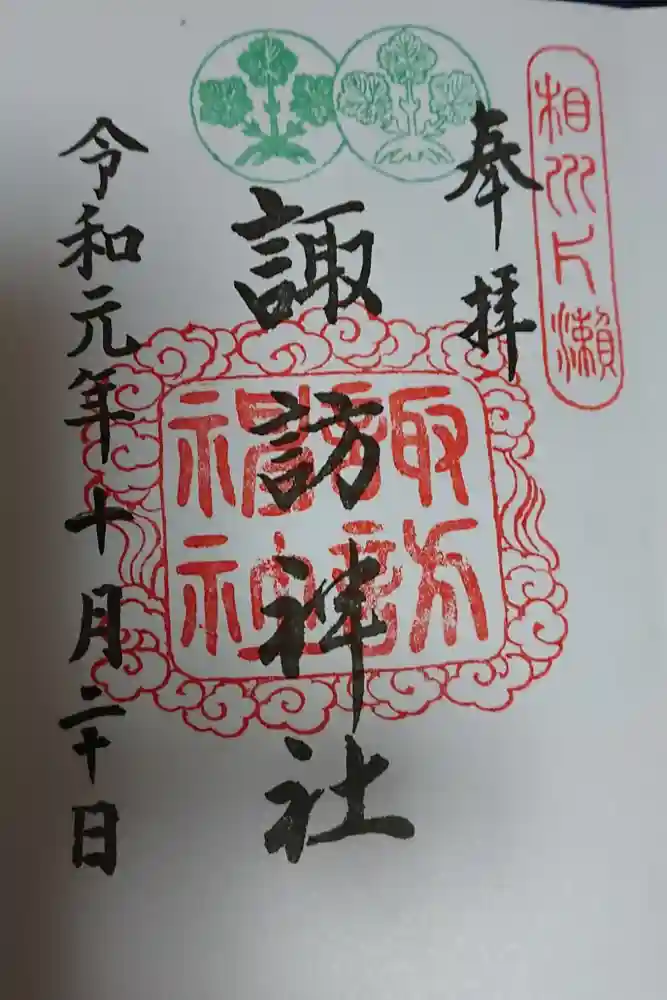 相州片瀬
奉拝
諏訪神社
諏訪神社
令和元年十月二十日